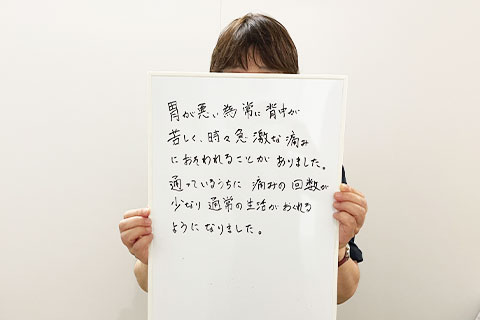 胃が悪い為 常に背中が
苦しく、時々急激な痛み
におそわれることがありました。
通っているうちに 痛みの回数が
少なり 通常の生活がおくれる
ようになりました。